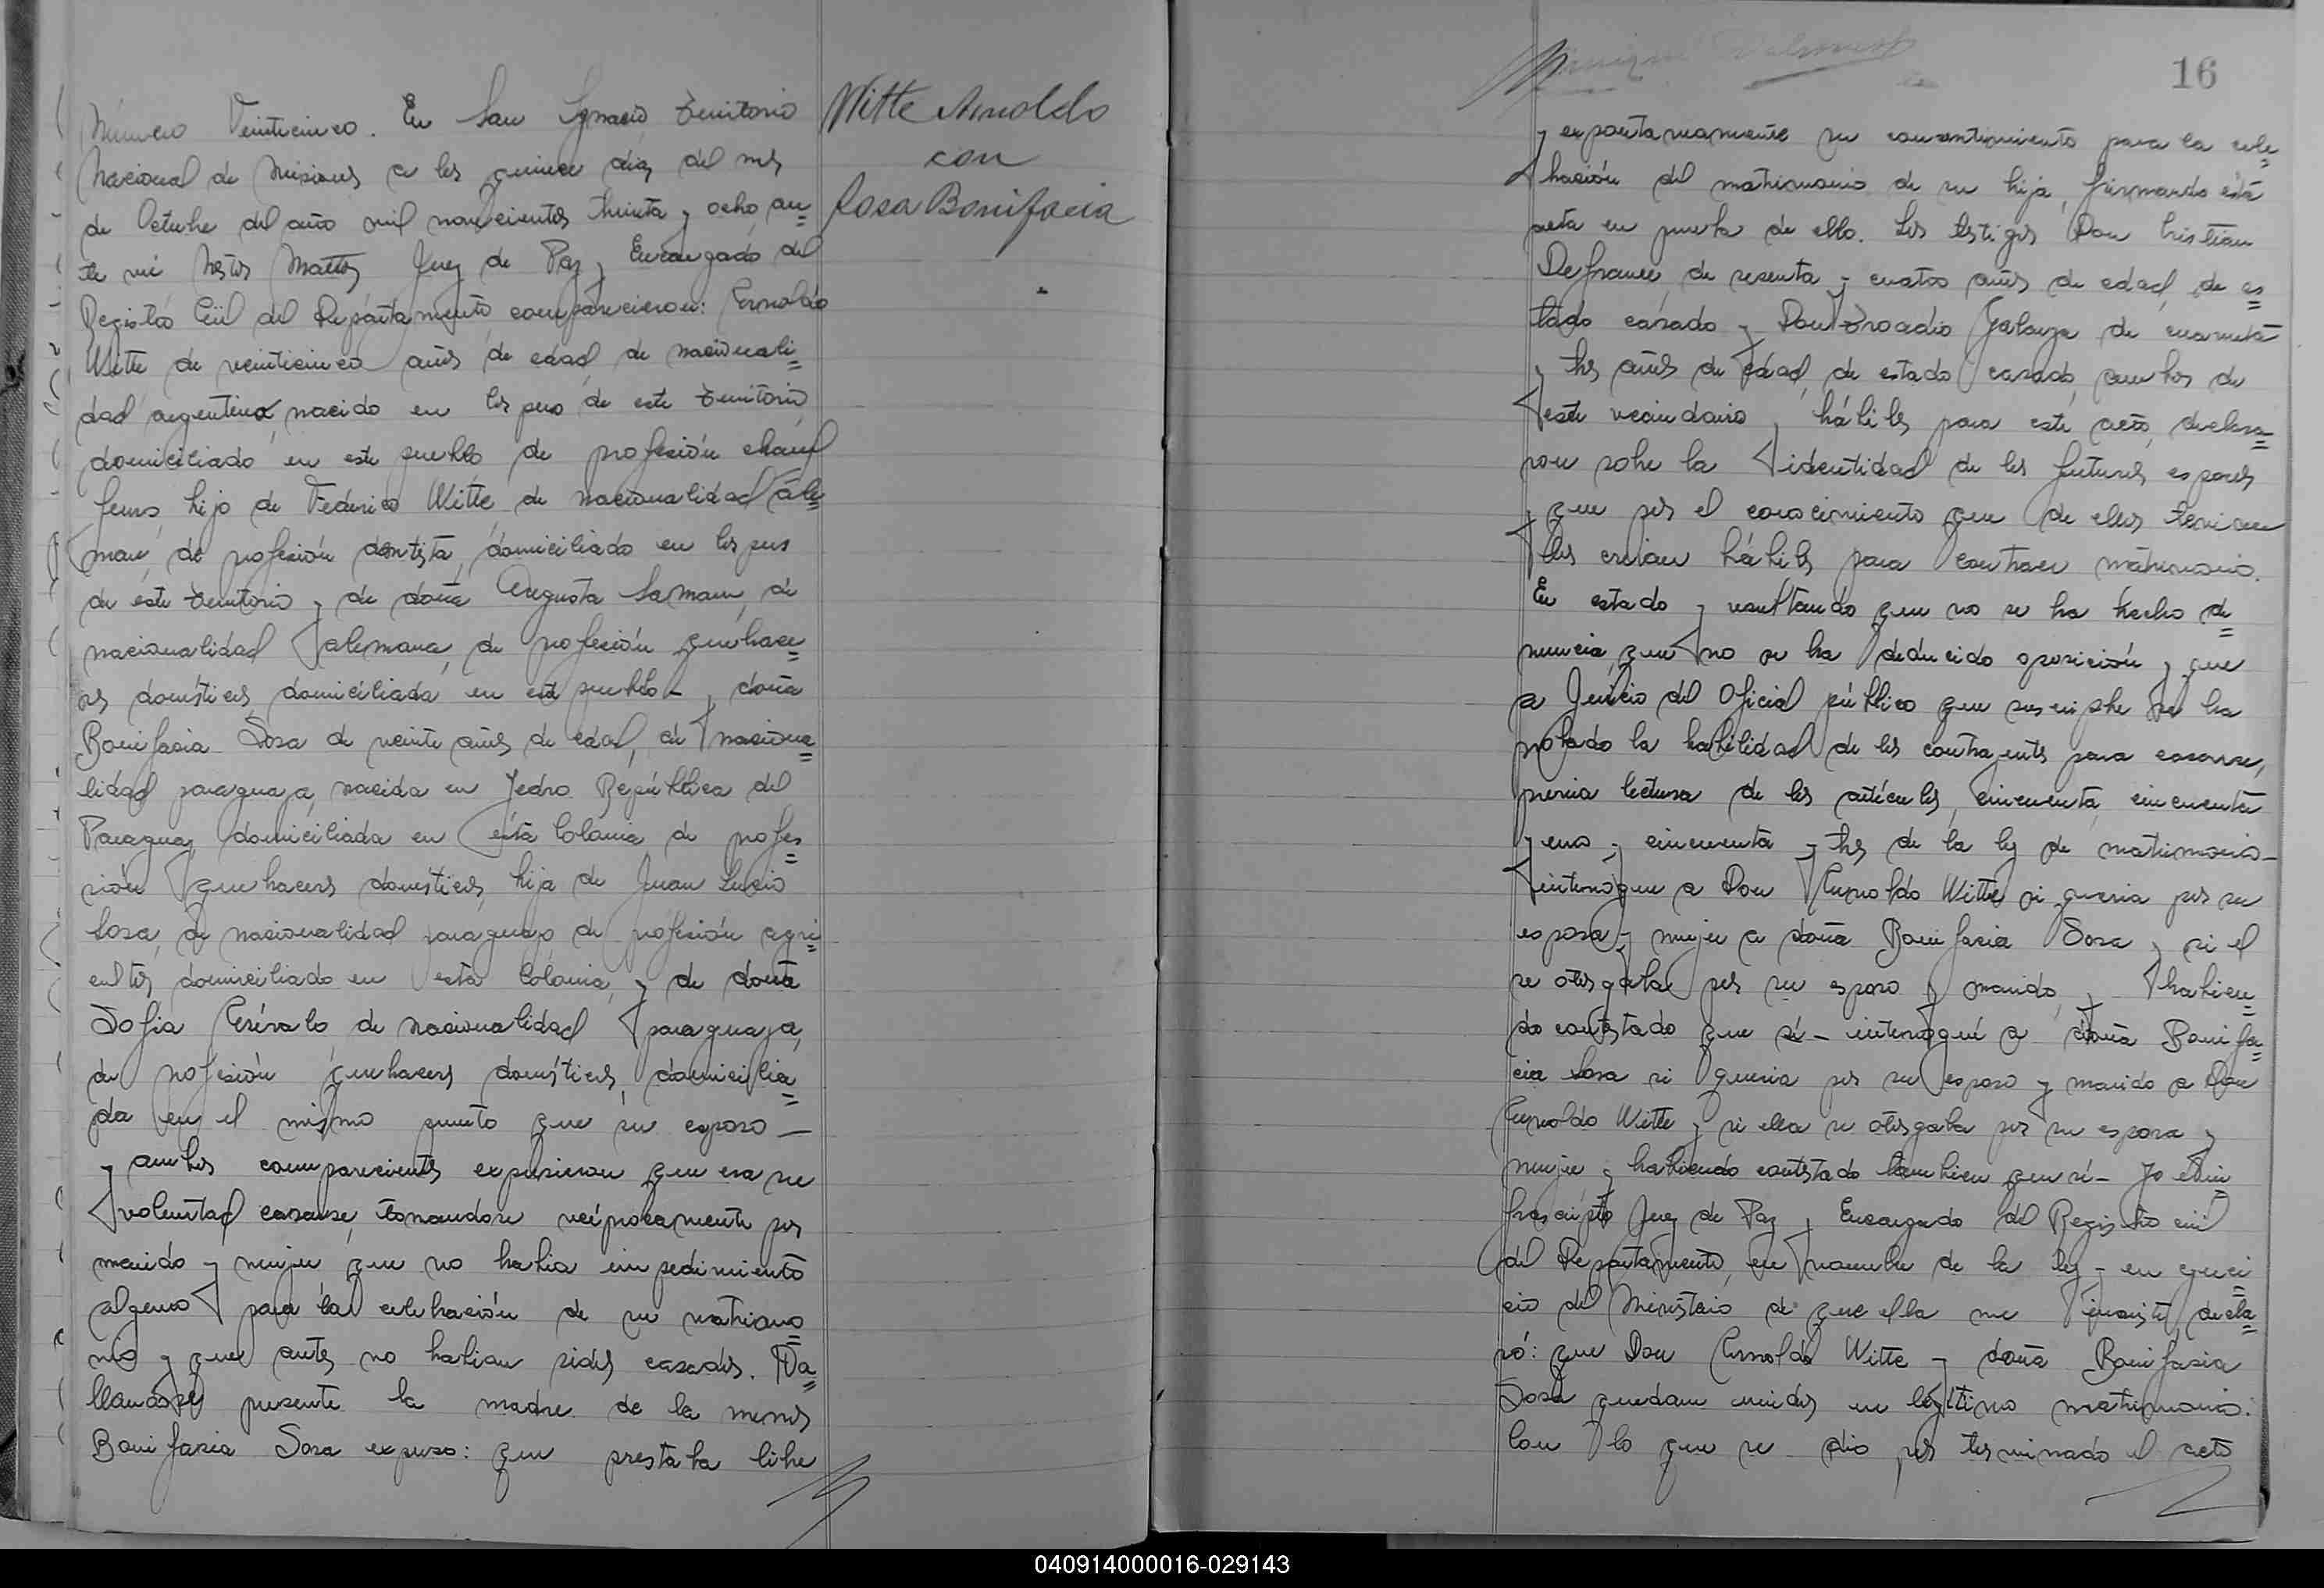 Número Veinticinco. En San Ignacio, Territorio
Nacional de Misiones a los quince días del mes
de Octubre del año mil novecientos treinta y ocho, an=
te mí Nestor Mattos, Juez de Paz y Encargado del
Registro Civil del Departamento comparecieron: Arnoldo
Witte de veinticinco años de edad, de nacionali=
dad argentina, nacido en de este Territorio,
domiciliado en este pueblo de profesión chauf
feurs, hijo de Federico Witte de nacionalidad ale=
man, de profesión dentista, domiciliado en
de este Territorio y de doña Augusta Lamam, de
nacionalidad alemana, de profesión quehace=
res domésticos, domiciliada en este pueblo - y doña
Bonifacia Sosa de veinte años de edad, de naciona=
lidad paraguaya, nacida en Yedro República del
Paraguay, domiciliada en esta Colonia de profe=
sión quehaceres domésticos, hija de Juan Lucio
Sosa, de nacionalidad paraguayo de profesión agri=
cultor, domiciliado en esta Colonia, y de doña
Sofia Arévalo, de nacionalidad paraguaya,
de profesión quehaceres domésticos, domicilia=
da en el mismo punto que su esposo —
y ambos comparecientes expusieron que era su
voluntad casarse, tomandose recíprocamente por
marido y mujer que no habia impedimiento
alguno para la celebración de su matrimo=
nio y que antes no habian sidos casados. Ha=
llandose presente la madre de la menor
Bonifacia Sosa expuso: que prestaba libre
Witte Arnoldo
con
Sosa Bonifacia
16
y expontaneamente su consentimiento para la cele=
bración del matrimonio de su hija, firmando esta
acta en prueba de ello. Los testigos Don Cristian
Defrance, de sesenta y cuatro años de edad, de es=
tado casado y Don Brocadio Galarza de cuarenta
y tres años de edad, de estado casado, ambos de
este vecindario y hábiles para este acto, declara=
ron sobre la identidad de los futuros esposos
y que por el conocimiento que de ellos tenian
los creian hábiles para contraer matrimonio.
En estado y resultando que no se ha hecho de=
nuncia, que no se ha deducido oposición y que
a Juicio del Oficial público que suscribe se ha
probado la habilidad de los contrayentes para casarse,
previa lectura de los artículos, cincuenta, cincuenta
y uno y cincuenta y tres de la ley de matrimonio —
interrogue a Don Arnoldo Witte si queria por su
esposa y mujer a doña Bonifacia Sosa y si el
se otorgaba por su esposo y marido, y habien=
do contestado que sí — interrogué a doña Bonifa=
cia Sosa si queria por su esposo y marido a Don
Arnoldo Witte y si ella se otorgaba por su esposa y
mujer y habiendo contestado tambien que sí — Yo el in
frascripto Juez de Paz y Encargado del Registro civil
del Departamento, en nombre de la ley y en ejerci=
cio del Ministerio de que ella me inviste, decla=
ró: que Don Arnoldo Witte y doña Bonifacia
Sosa quedan unidos en legítimo matrimonio.
Con lo que se dio por terminado el acto
040914000016-029143